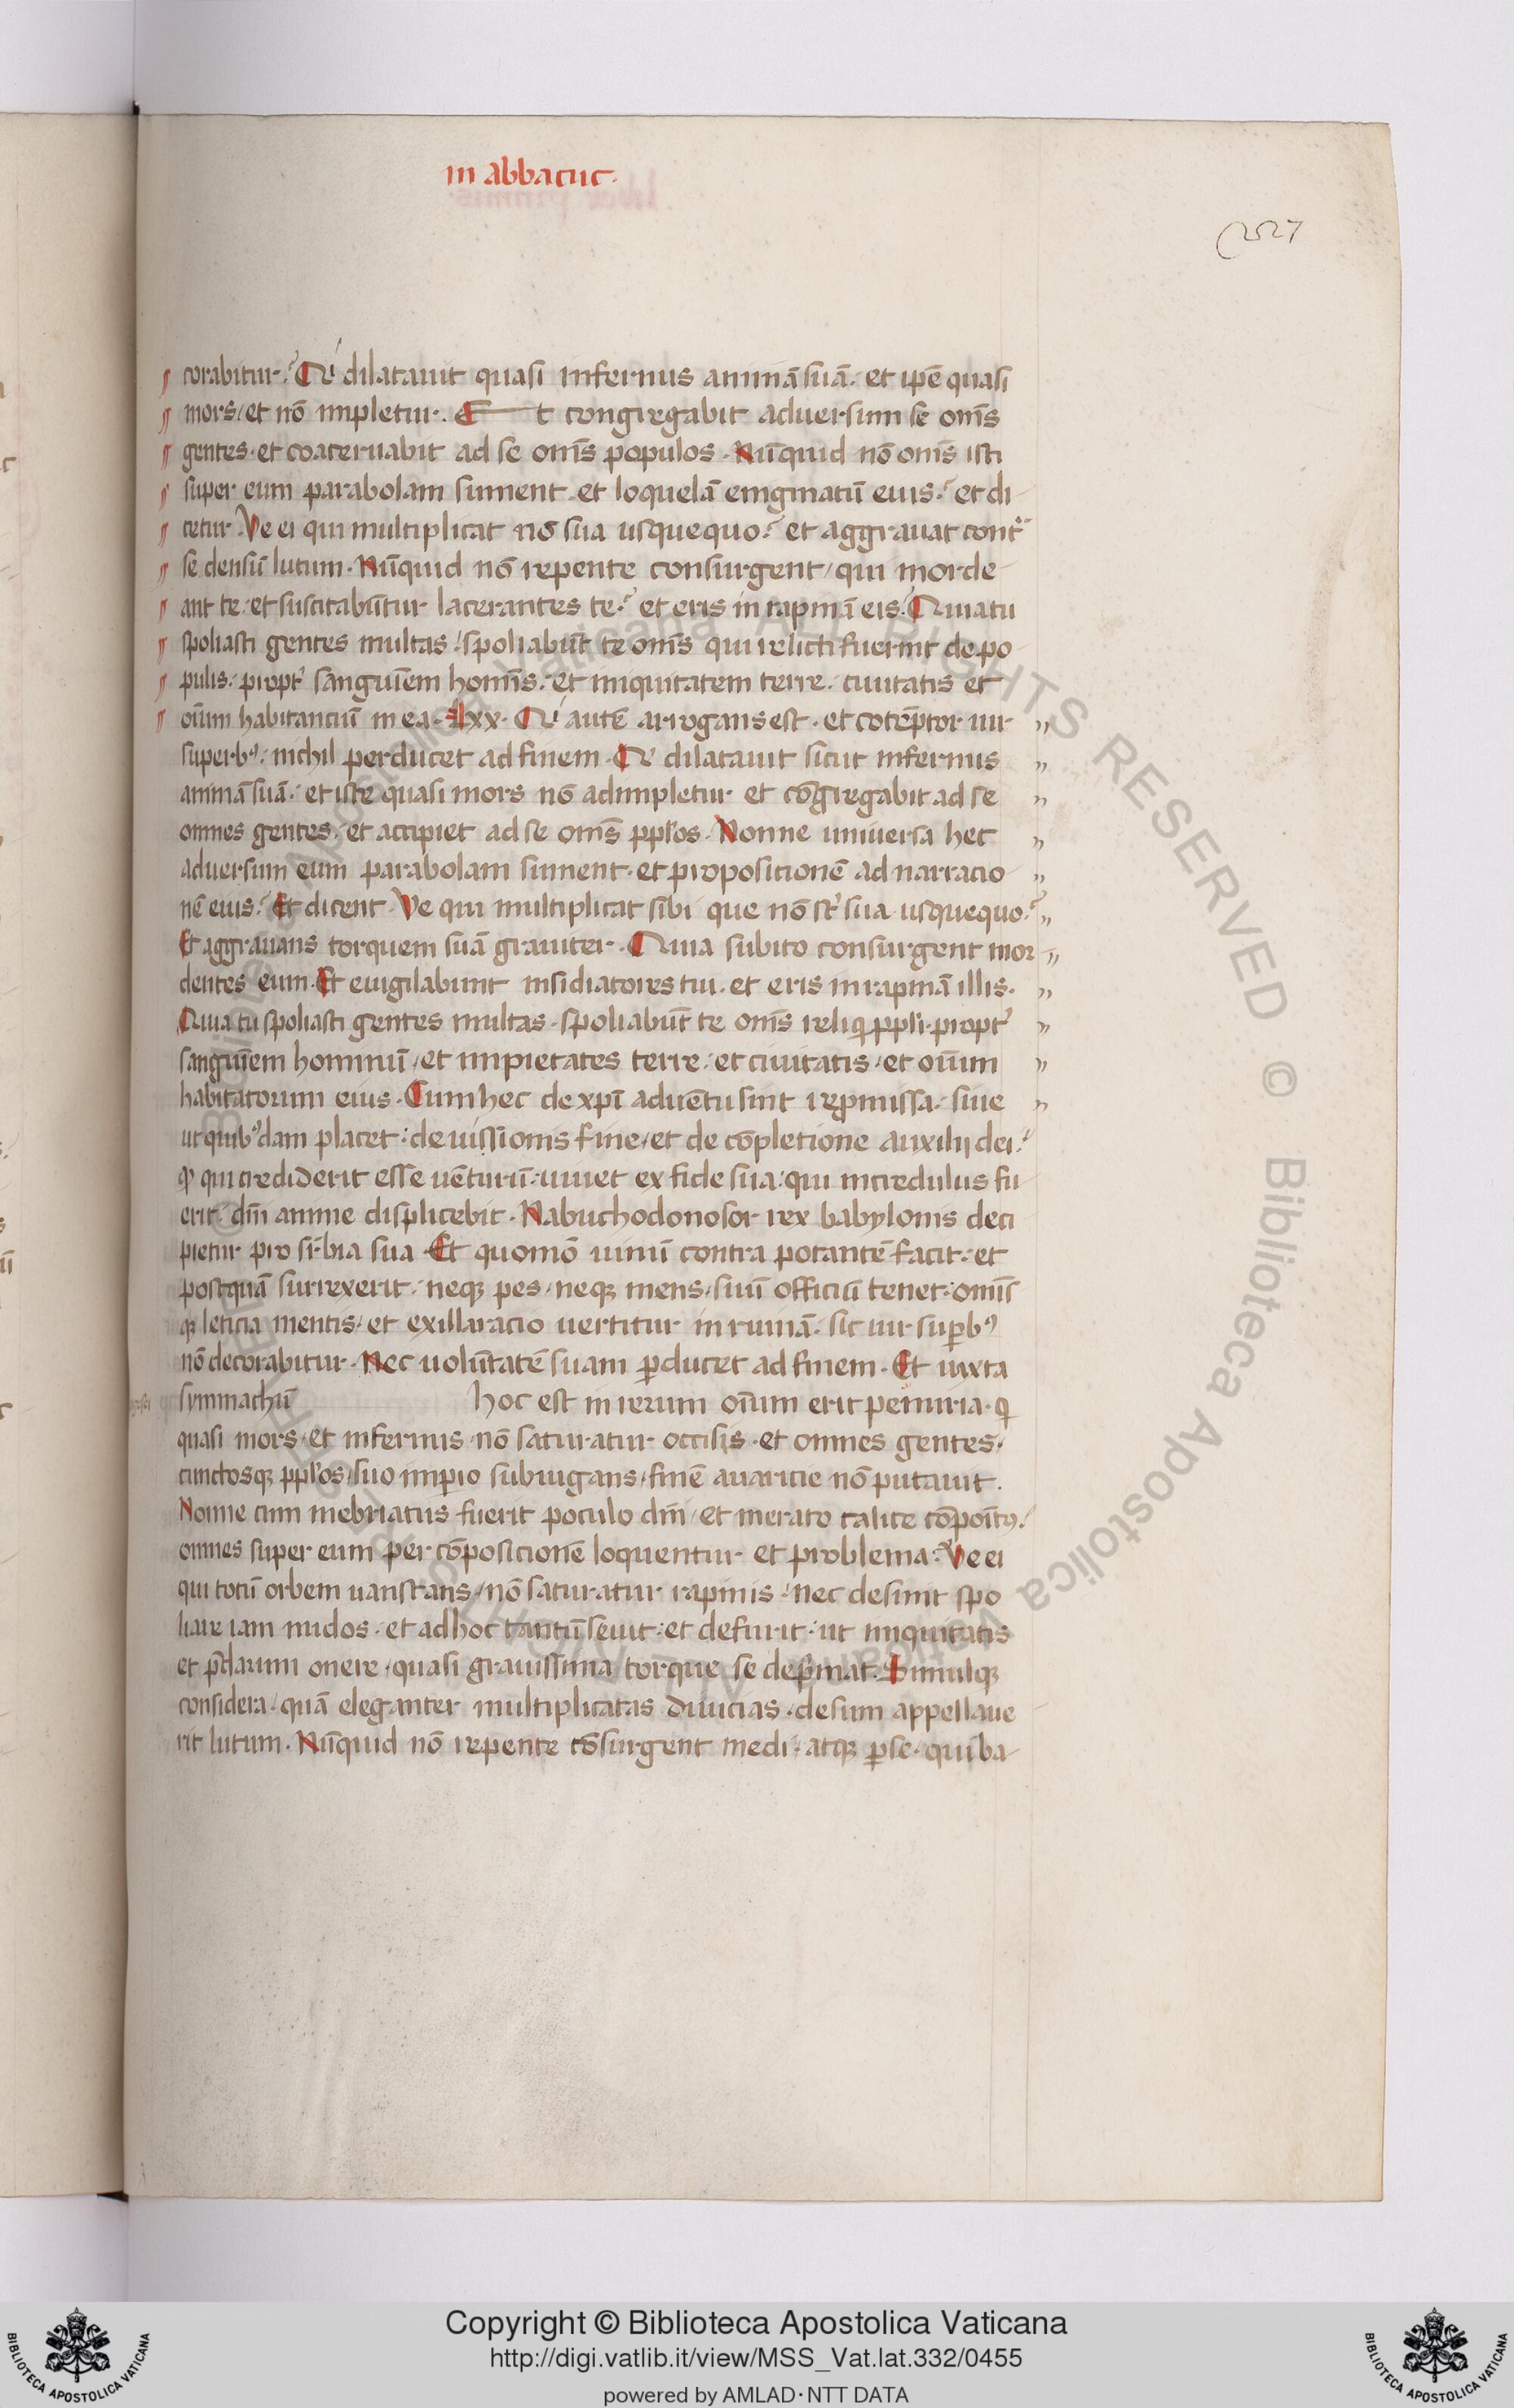 in abbacuc.
227
corabitur. Qi dilatauit quasi infernus animā suā. et ipē quasi
mors. et nō impletur. Et congregabit aduersum se om̄s
gentes. et coaceruabit ad se om̄s populos. Nūquid nō om̄s isti
super eum parabolam sument. et loquelā enigmatū eius. et di
cetur. Ve ei qui multiplicat nō sua usquequo. et aggrauat cont̾
se densū lutum. Nūquid nō repente consurgent, qui morde
ant te. et suscitabūtur lacerantes te. et eris in rapinā eis. Quia tu
spoliasti gentes multas. spoliabūt te om̄s qui relicti fuerint de po
pulis. propt̾ sanguīem homīs. et iniquitatem terre. ciuitatis et
oīum habitanciū in ea. Lxx. Qi autē arrogans est. et cotēptor uir
superbꝰ. nichil perducet ad finem. Qi dilatauit sicut infernus
animā suā. et iste quasi mors nō adimpletur et cōgregabit ad se
omnes gentes. et accipiet ad se om̄s pplōs. Nonne uniuersa hec
aduersum eum parabolam sument. et propositionē ad narracio
nē eius. Et dicent. Ve qui multiplicat sibi que nō st̾ sua usquequo.
Et aggrauans torquem suā grauiter. Quia subito consurgent mor
dentes eum. Et euigilabunt insidiatores tui. et eris in rapinā illis.
Quia tu spoliasti gentes multas. spoliabūt te om̄s reliqi ppli. propt̾
sanguīem hominū, et impietates terre. et ciuitatis, et oīum
habitatorum eius. Cum hec de xp̄i aduētu sint repmissa. siue
ut quibꝰdam placet. de uissionis fine, et de cōpletione auxilij dei.
ꝙ qui crediderit esse uēturū. uiuet ex fide sua: qui incredulus fu
erit. dn̄i anime displicebit. Nabuchodonosor rex babylonis deci
pietur pro suꝑbia sua. Et quomō uinū contra potantē facit. et
postquā surrexerit. neqꝫ pes, neqꝫ mens, suū officiū tenet. omīs
qꝫ leticia mentis, et exillaracio uertitur in ruinā. sic uir suꝑbꝰ
nō decorabitur. Nec uolūtatē suam ꝑducet ad finem. Et iuxta
symmachū hoc est in rerum oīum erit penuria. qi
quasi mors. et infernus nō saturatur occisis. et omnes gentes.
cunctosqꝫ pplōs, suo imꝑio subiugans, finē auaricie nō putauit.
Nonne cum inebriatus fuerit poculo dn̄i, et merato calice
omnes super eum per cōposicionē loquentur et problema. Ve ei
qui totū orbem uanstans, nō saturatur rapinis. nec desinit spo
liare iam nudos. et ad hoc tantū seuit. et defurit. ut iniquitatis
et p̄darum onere, quasi grauissima torque se dep̄mat. Simulqꝫ
considera. quā eleganter multiplicatas diuicias. desum appellaue
rit lutum. Nūquid nō repente cōsurgent medi. atqꝫ ꝑse. qui ba
© Biblioteca Apostolica Vaticana ALL RIGHTS RESERVED
Copyright © Biblioteca Apostolica Vaticana
http://digi.vatlib.it/view/MSS_Vat.lat.332/0455
powered by AMLAD·NTT DATA
BIBLIOTECA APOSTOLICA VATICANA
BIBLIOTECA APOSTOLICA VATICANA